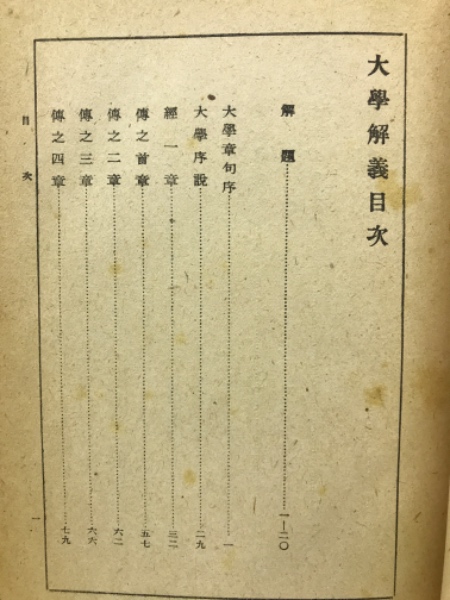 大學解義目次
解題…………一—二〇
大學章句序…………一
大學序說…………二九
經一章…………三二
傳之首章…………五七
傳之二章…………六二
傳之三章…………六六
傳之四章…………七九
目次
一